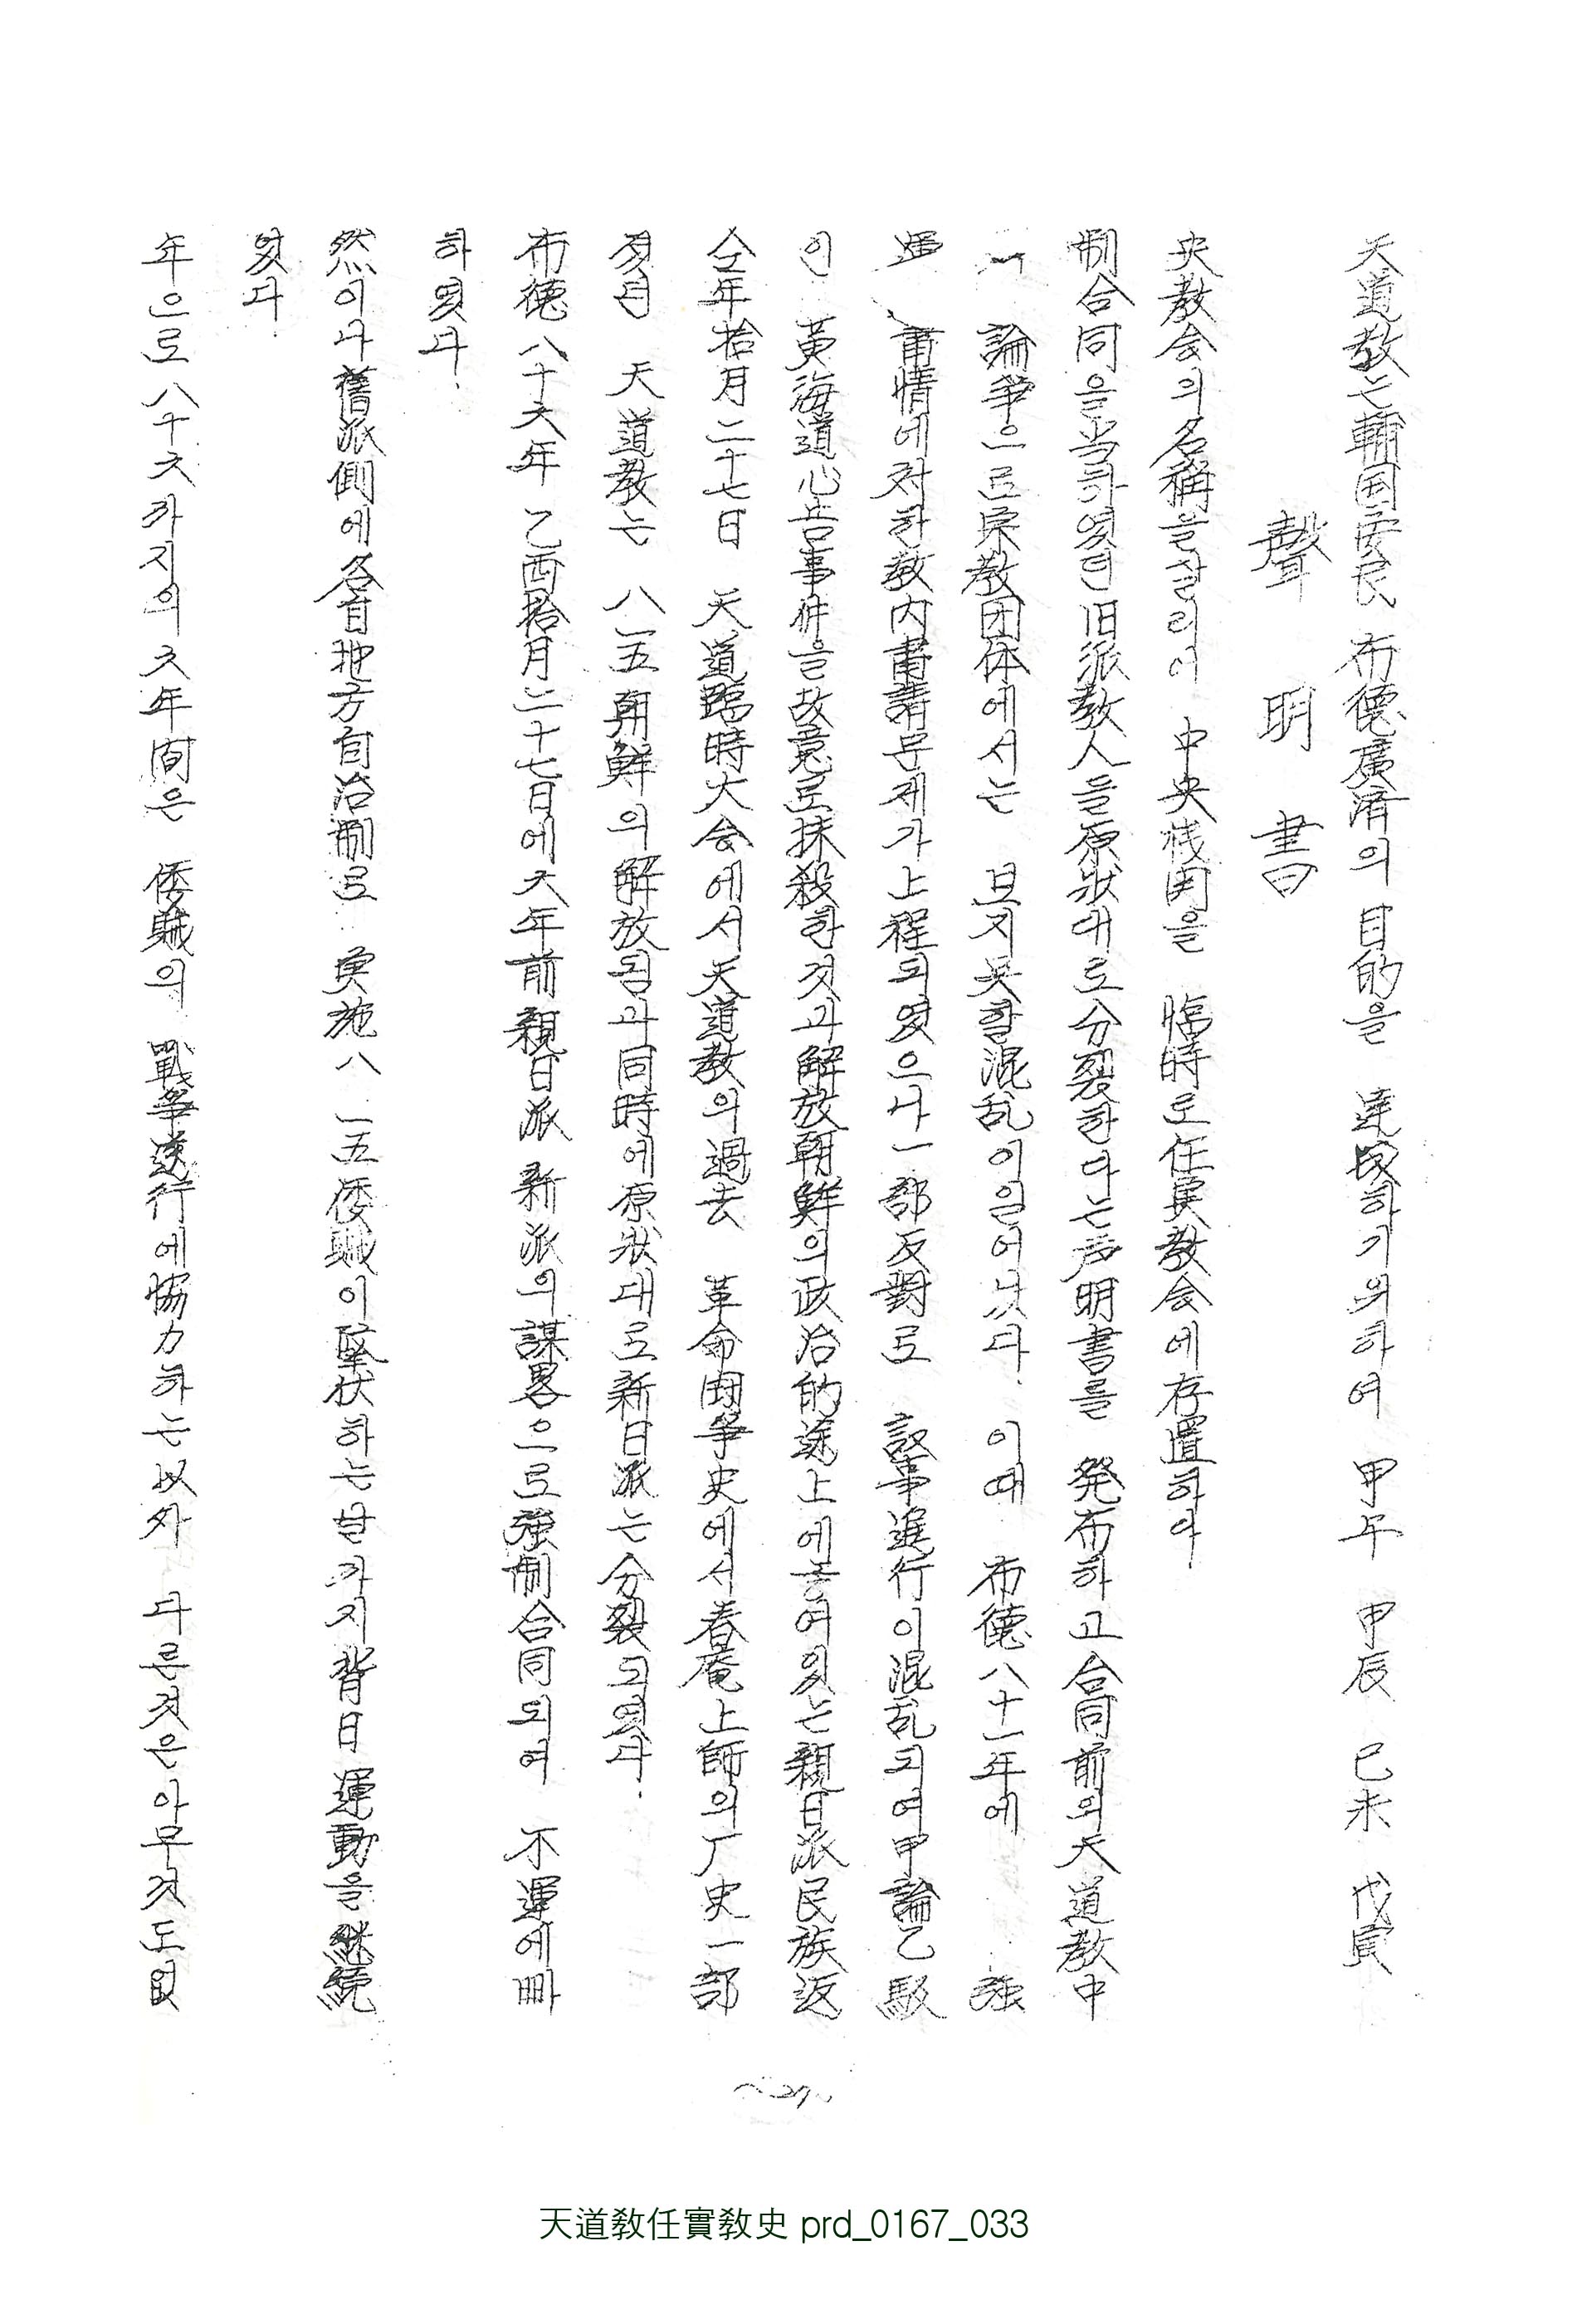 年으로 八十六까지의 六年間은 倭賊의 戰爭遂行에協力하는以外 다른것은아무것도없
엇다.
然이나舊派側에各自地方自治制로 実施八.一五倭賊이墜状하는날까지背日運動을継続
하엿다.
布德八十六年 乙酉拾月二十七日에六年前親日派 新派의謀畧으로强制合同되여 不運에빠
天道教는 八一五朝鮮의解放됨과同時에原狀대로新日派는分裂되엿다.
仝年拾月二十七日 天道臨時大会에서天道教의過去 革命闘爭史에서春菴上師의厂史一部
인 黃海道心告事件을故意로抹殺한것과解放朝鮮의政治的途上에놓여잇는親日派民族返
逆 情에対한教内肅請문제가上程되엿으나一部反對로 議事進行이混乱되여甲論乙駁
의 論爭으로宗教団体에서는 보지못할混乱이일어낫다. 이때 布德八十一年에 强
制合同을当하엿던旧派教人을原狀대로分裂한다는声明書를 発布하고合同前의天道教中
央教会의名稱을살리어 中央機関을 臨時로任實教会에存置하다.
聲明書
天道教는輔国安民 布德廣済의目的을 達成하기위하여 甲午 甲辰 己未 戊寅
~27~
天道敎任實敎史 prd_0167_033